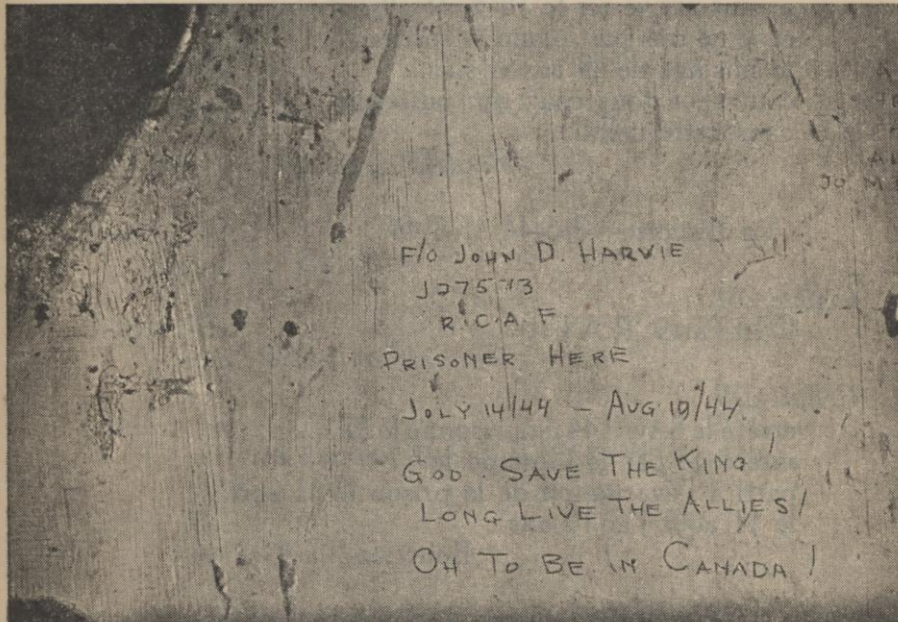 F/O JOHN D. HARVIE
J27573
R.C.A.F.
PRISONER HERE
JULY 14/44 - AUG 10/44.
GOD SAVE THE KING!
LONG LIVE THE ALLIES!
OH TO BE IN CANADA!